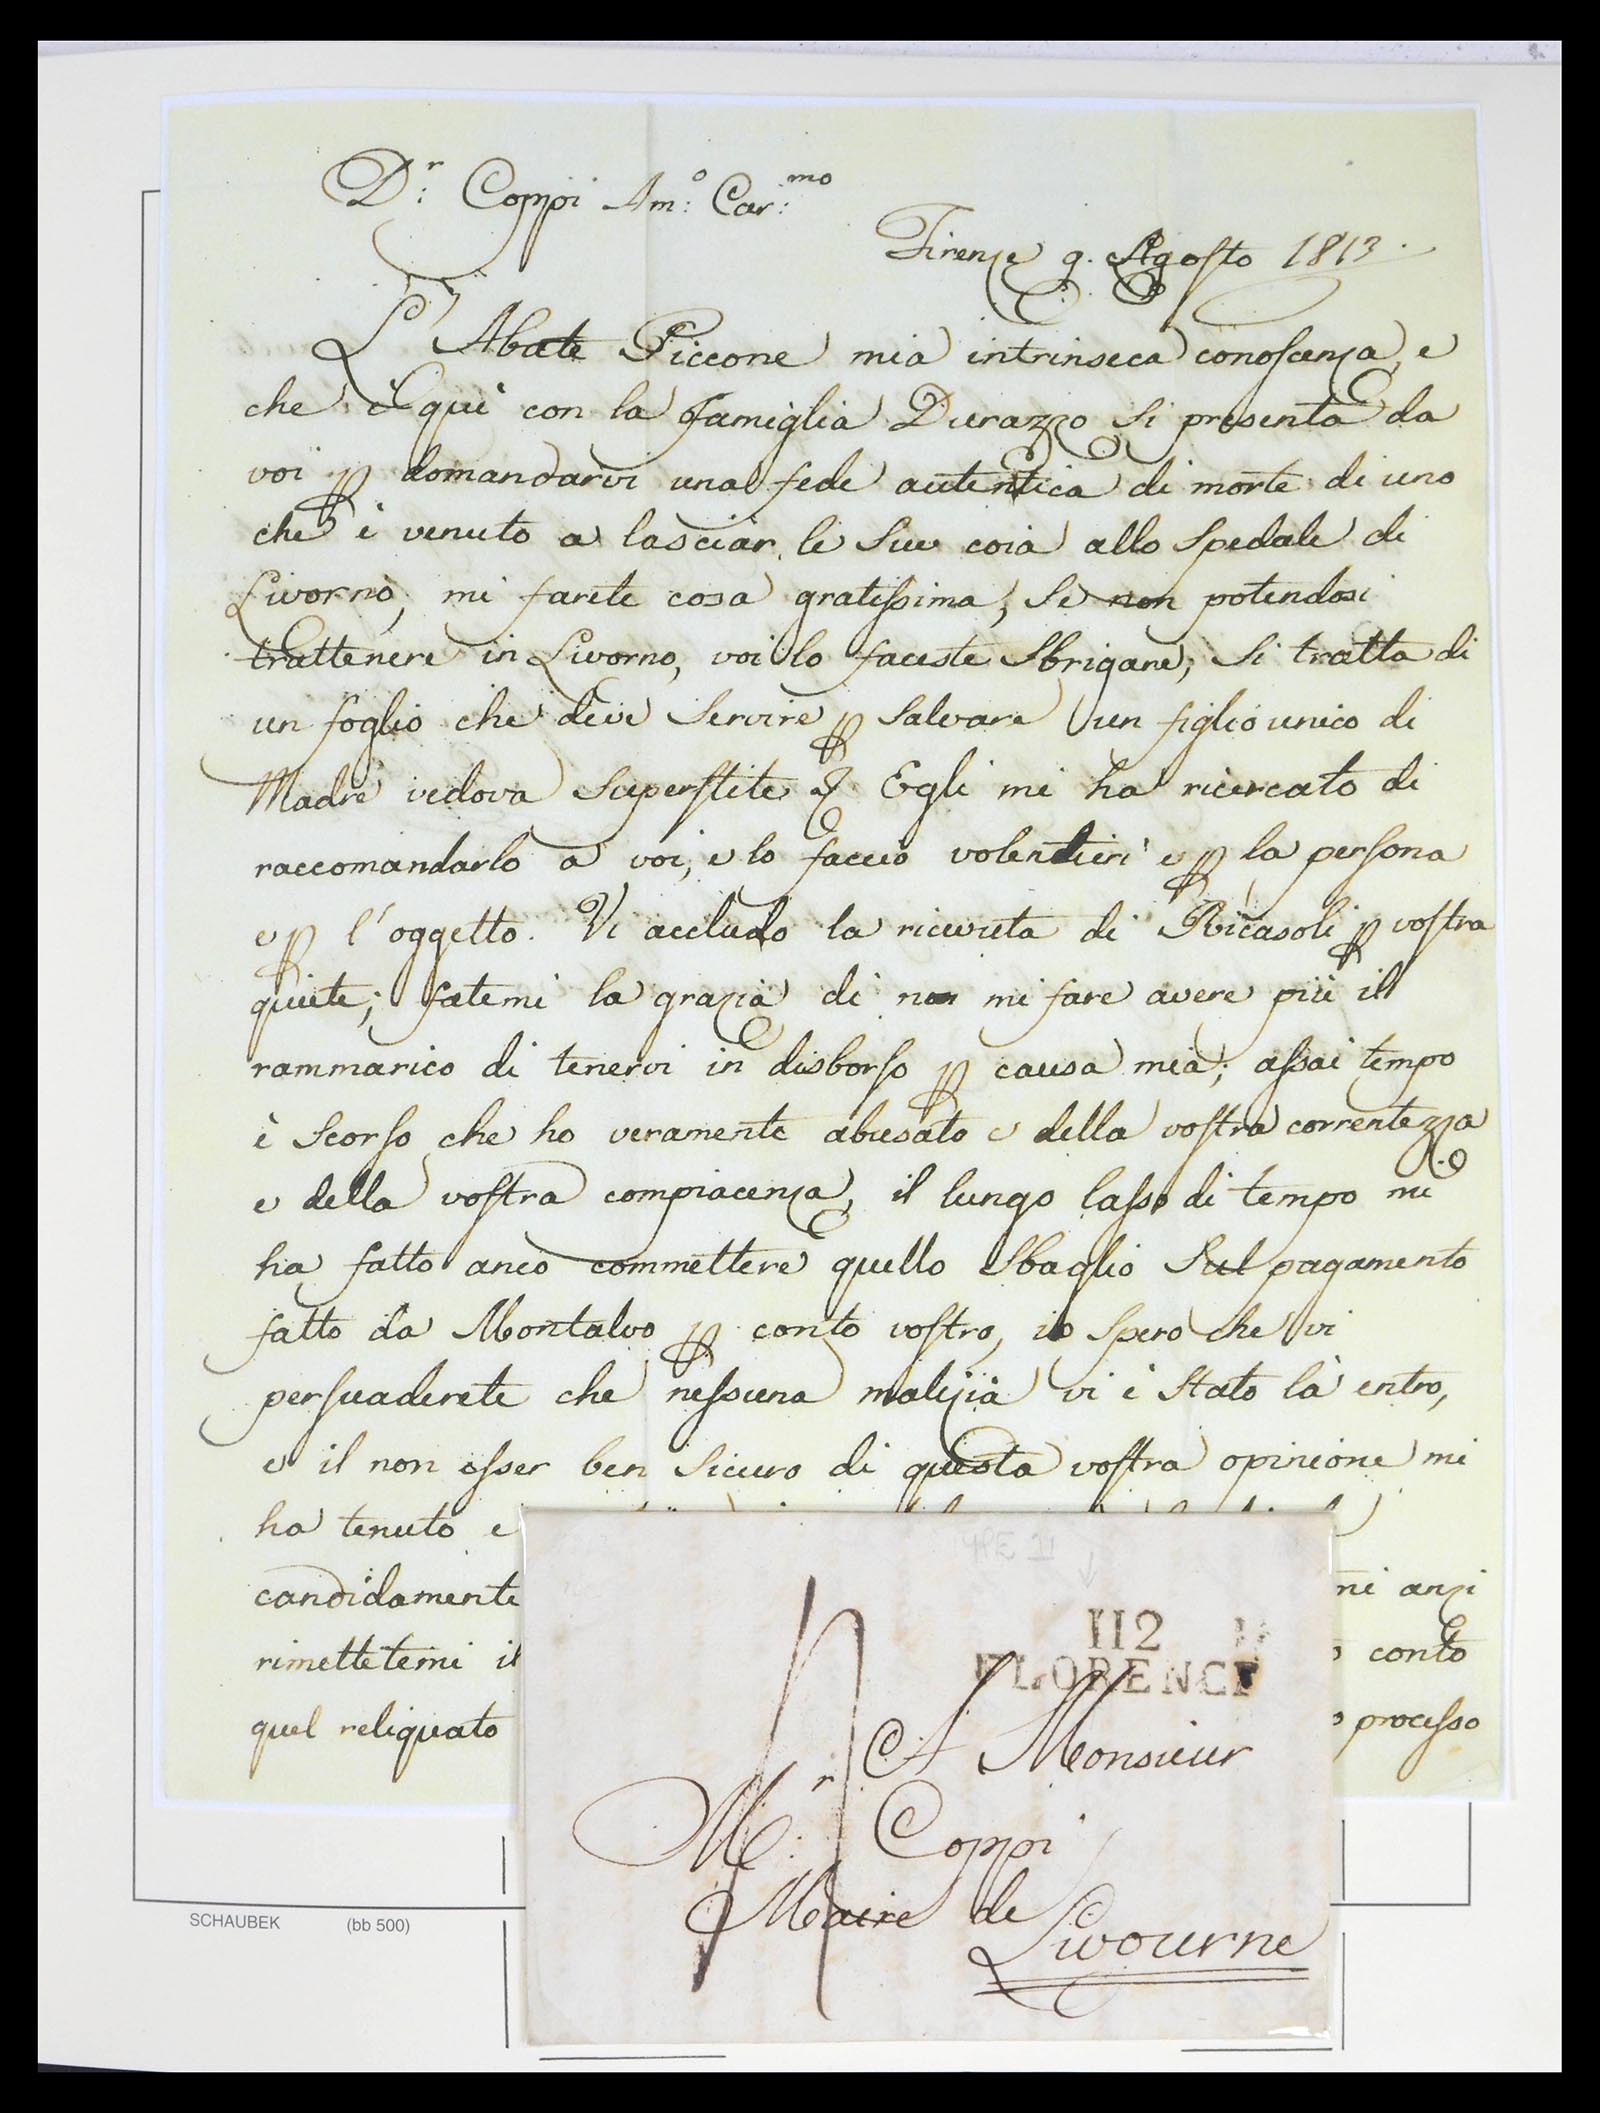 D.r Coppi Am:o Car:mo
Firenze 9. Agosto 1813.
L'Abate Piccone mia intrinseca conoscenza, e
che è quì con la famiglia Durazzo si presenta da
voi p domandarvi una fede autentica di morte di uno
che è venuto a lasciar le sue coia allo Spedale di
Livorno, mi farete cosa gratissima, se non potendosi
trattenere in Livorno, voi lo faceste sbrigare; si tratta di
un foglio che deve servire p salvare un figlio unico di
Madre vedova superstite & Egli mi ha ricercato di
raccomandarlo a voi, e lo faccio volentieri e p la persona
e p l'oggetto. Vi accludo la ricevuta di Ricasoli p vostra
quiete; fatemi la grazia di non mi fare avere più il
rammarico di tenervi in disborso p causa mia; assai tempo
è scorso che ho veramente abusato e della vostra correntezza
e della vostra compiacenza, il lungo lasso di tempo mi
ha fatto anco commettere quello sbaglio sul pagamento
fatto da Montalvo p conto vostro, io spero che vi
persuaderete che nessuna malizia vi è stato là entro,
e il non esser ben sicuro di questa vostra opinione mi
ha tenuto e
candidamente mi anzi
rimettetemi il conto
quel reliquato processo
TYPE II
112
FLORENCE
A Monsieur
M.r Coppi
Maire de
Livourne
SCHAUBEK (bb 500)